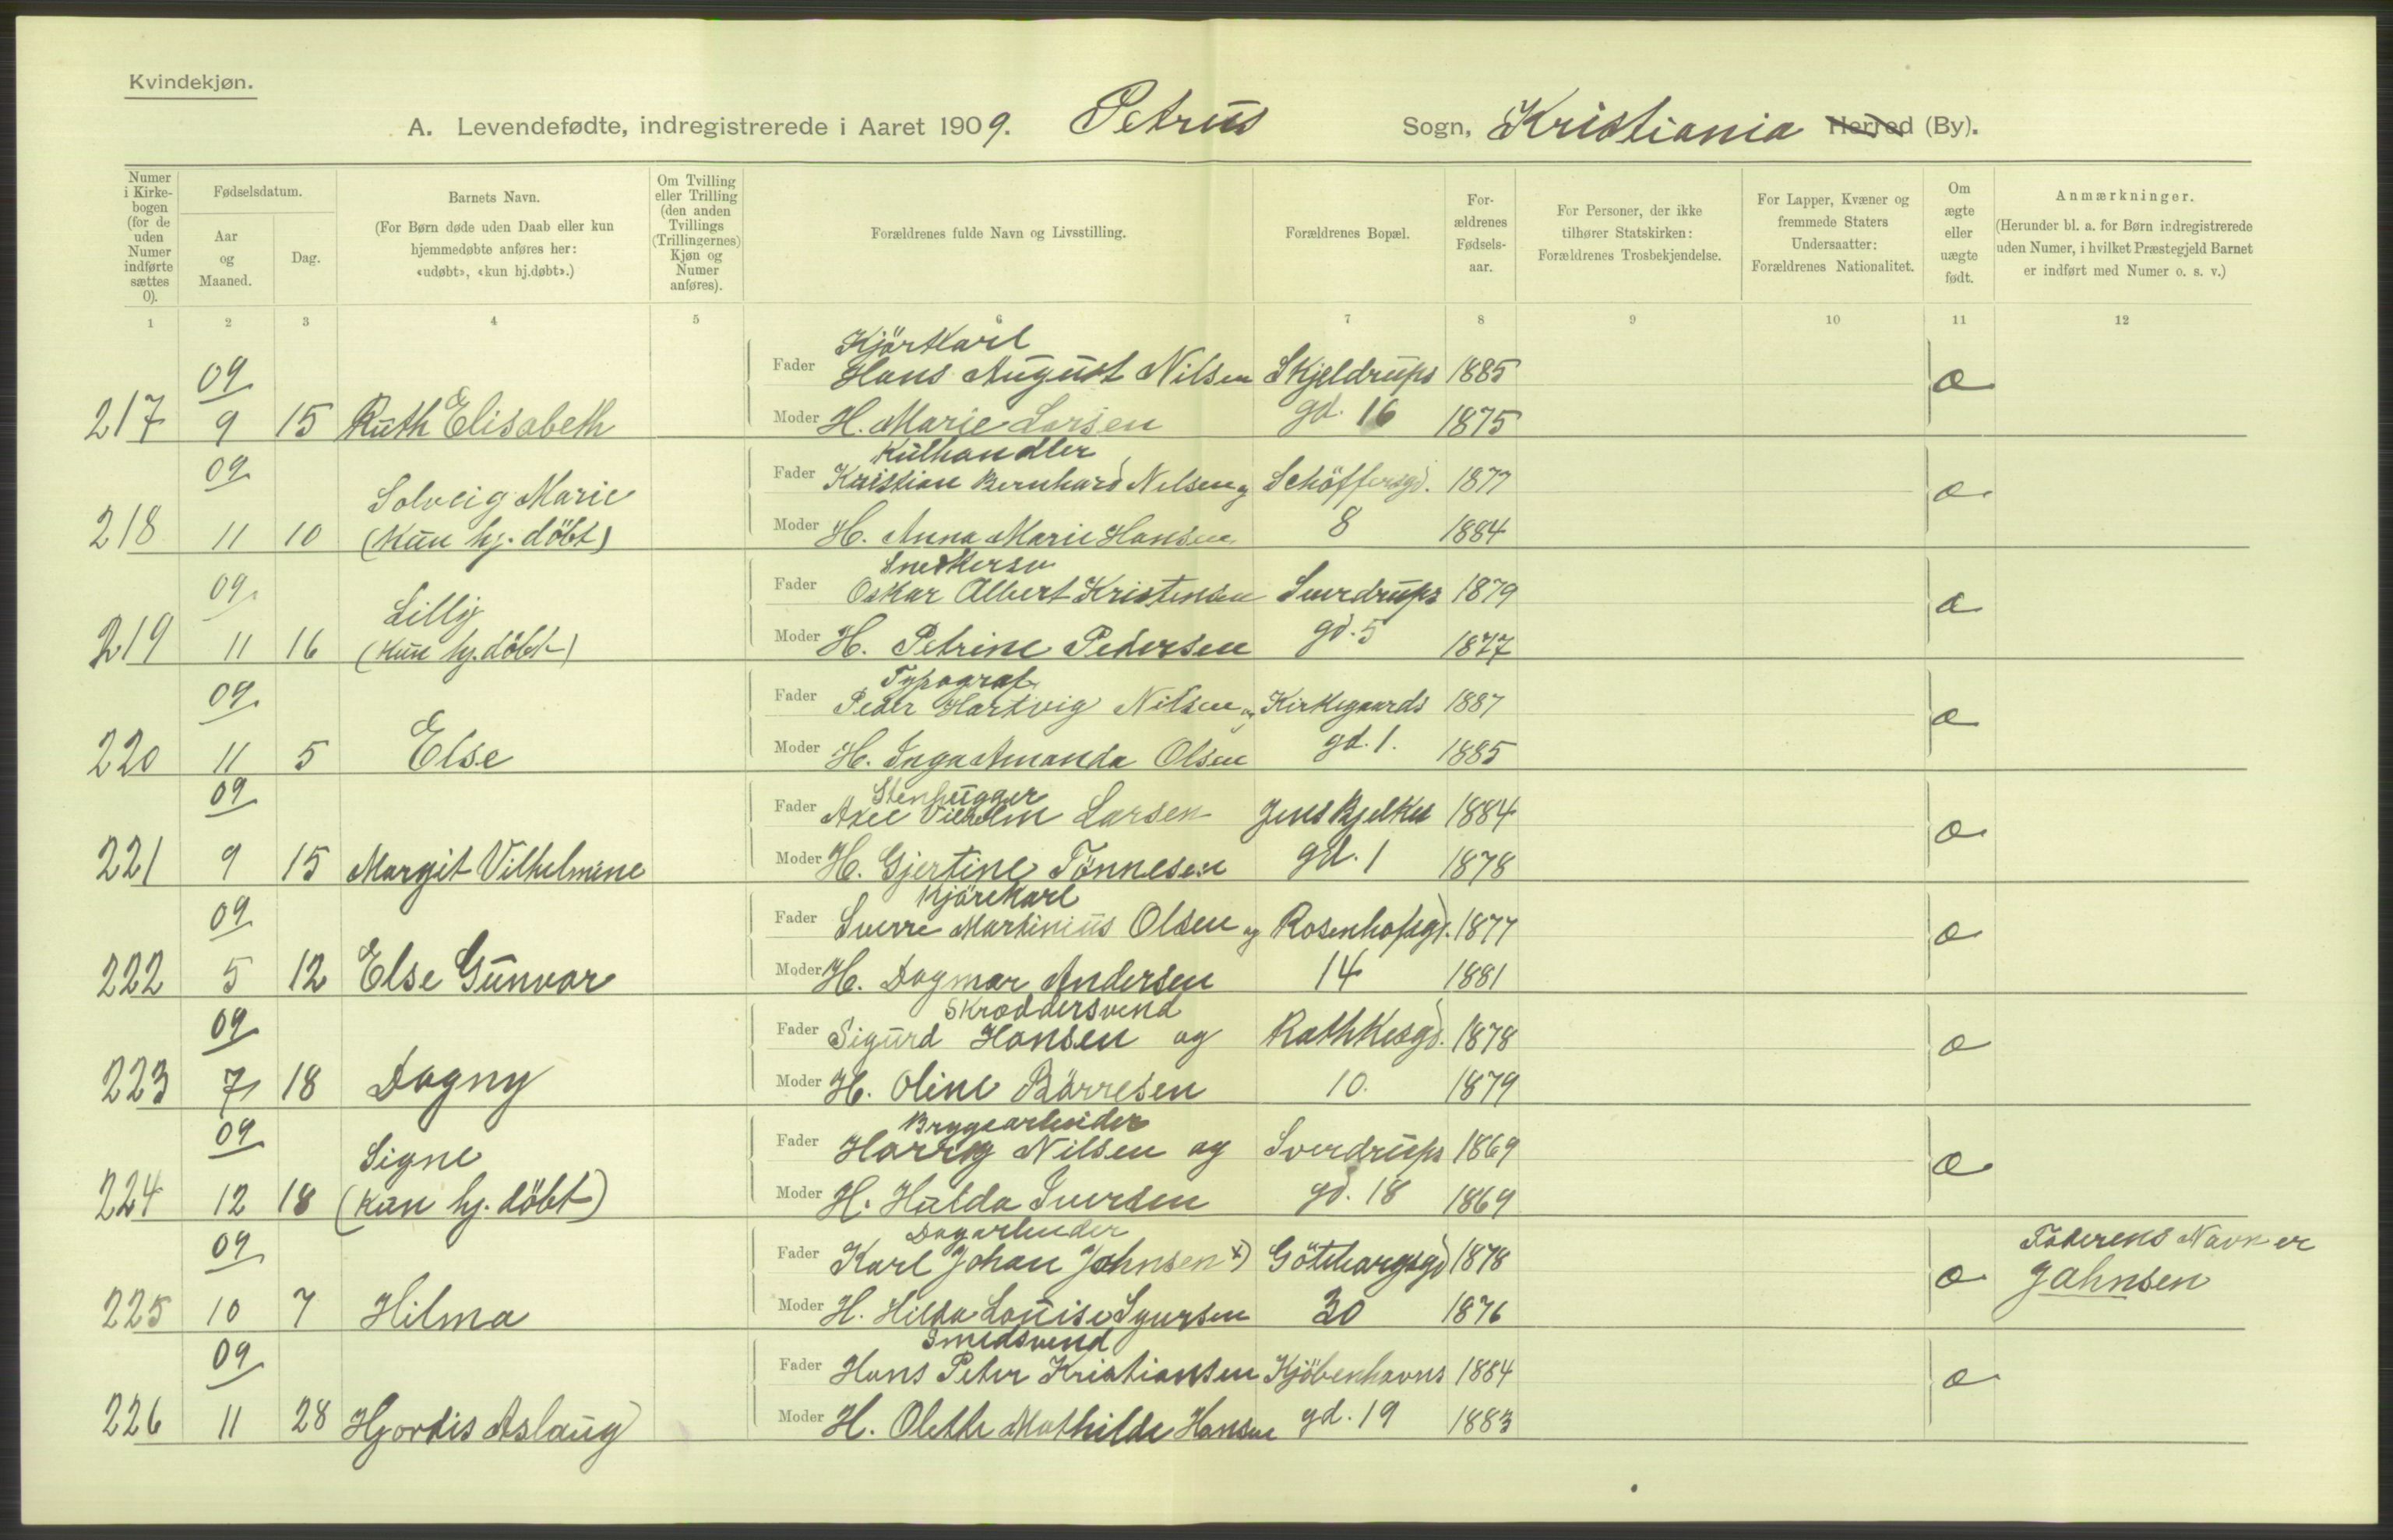 Kvindekjøn.
A. Levendefødte, indregistrerede i Aaret 1909. Petrus Sogn, Kristiania Herred (By).
Numer i Kirkebogen (for de uden Numer indførte sættes 0).
Fødselsdatum.
Aar og Maaned.
Dag.
Barnets Navn.
(For Børn døde uden Daab eller kun hjemmedøbte anføres her: «udøbt», «kun hj.døbt».)
Om Tvilling eller Trilling (den anden Tvillings (Trillingernes) Kjøn og Numer anføres).
Forældrenes fulde Navn og Livsstilling.
Forældrenes Bopæl.
Forældrenes Fødselsaar.
For Personer, der ikke tilhører Statskirken: Forældrenes Trosbekjendelse.
For Lapper, Kvæner og fremmede Staters Undersaatter: Forældrenes Nationalitet.
Om ægte eller uægte født.
Anmærkninger.
(Herunder bl. a. for Børn indregistrerede uden Numer, i hvilket Præstegjeld Barnet er indført med Numer o. s. v.)
1 2 3 4 5 6 7 8 9 10 11 12
Kjörkarl
09 Fader Hans August Nilsen Skjeldrups 1885 æ
217 9 15 Ruth Elisabeth Moder H. Marie Larsen gd. 16 1875
Kulhandler
09 Solveig Marie Fader Kristian Bernhard Nilsen og Schöffersgd. 1877 æ
218 11 10 (Kun hj. döbt) Moder H. Anna Marie Hansen 8 1884
Snedkersv
09 Lilly Fader Oskar Albert Kristensen Sverdrups 1879 æ
219 11 16 (Kun hj. döbt) Moder H. Petrine Pedersen gd. 5 1877
Typograf
09 Fader Peder Hartvig Nilsen og Kirkegaards 1887 æ
220 11 5 Else Moder H. Inga Amanda Olsen gd. 1. 1885
Stenhugger
09 Fader Axel Vilhelm Larsen Jens Bjelkes 1884 æ
221 9 15 Margit Vilhelmine Moder H. Gjertine Tönnesen gd. 1 1878
Kjörekarl
09 Fader Sverre Martinius Olsen og Rosenhofsgd. 1877 æ
222 5 12 Else Gunvor Moder H. Dagmar Andersen 14 1881
Skræddersvend
09 Fader Sigurd Hansen og Rathkesgd. 1878 æ
223 7 18 Dagny Moder H. Oline Börresen 10. 1879
Bryggearbeider
09 Signe Fader Harry Nilsen og Sverdrups 1869 æ
224 12 18 (Kun hj. döbt) Moder H. Hulda Iversen gd. 18 1869
Dagarbeider
09 Fader Karl Johan Johnsen x) Göteborgsgd 1878 æ Faderens Navn er
225 10 7 Hilma Moder H. Hilda Louise Syversen 30 1876 Jahnsen
Smedsvend
09 Fader Hans Peter Kristiansen Kjöbenhavns 1884 æ
226 11 28 Hjordis Aslaug Moder H. Olette Mathilde Hansen gd. 19 1883